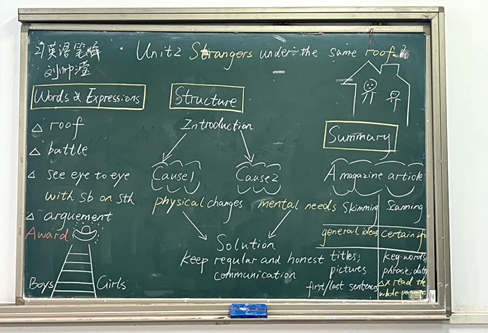 21英语笔师
刘帅滢
· Unit2 Strangers under the same roof?
Words & Expressions
△ roof
△ battle
△ see eye to eye
with sb on sth
△ arguement
Award
Boys
Girls
Structure
Introduction
Cause1
Cause2
physical changes
mental needs
Solution
keep regular and honest
communication
Summary
A magazine article
Skimming
Scanning
general idea
Certain info
titles;
pictures
first/last sentence
key words,
phrase, data
△× read the
whole passage